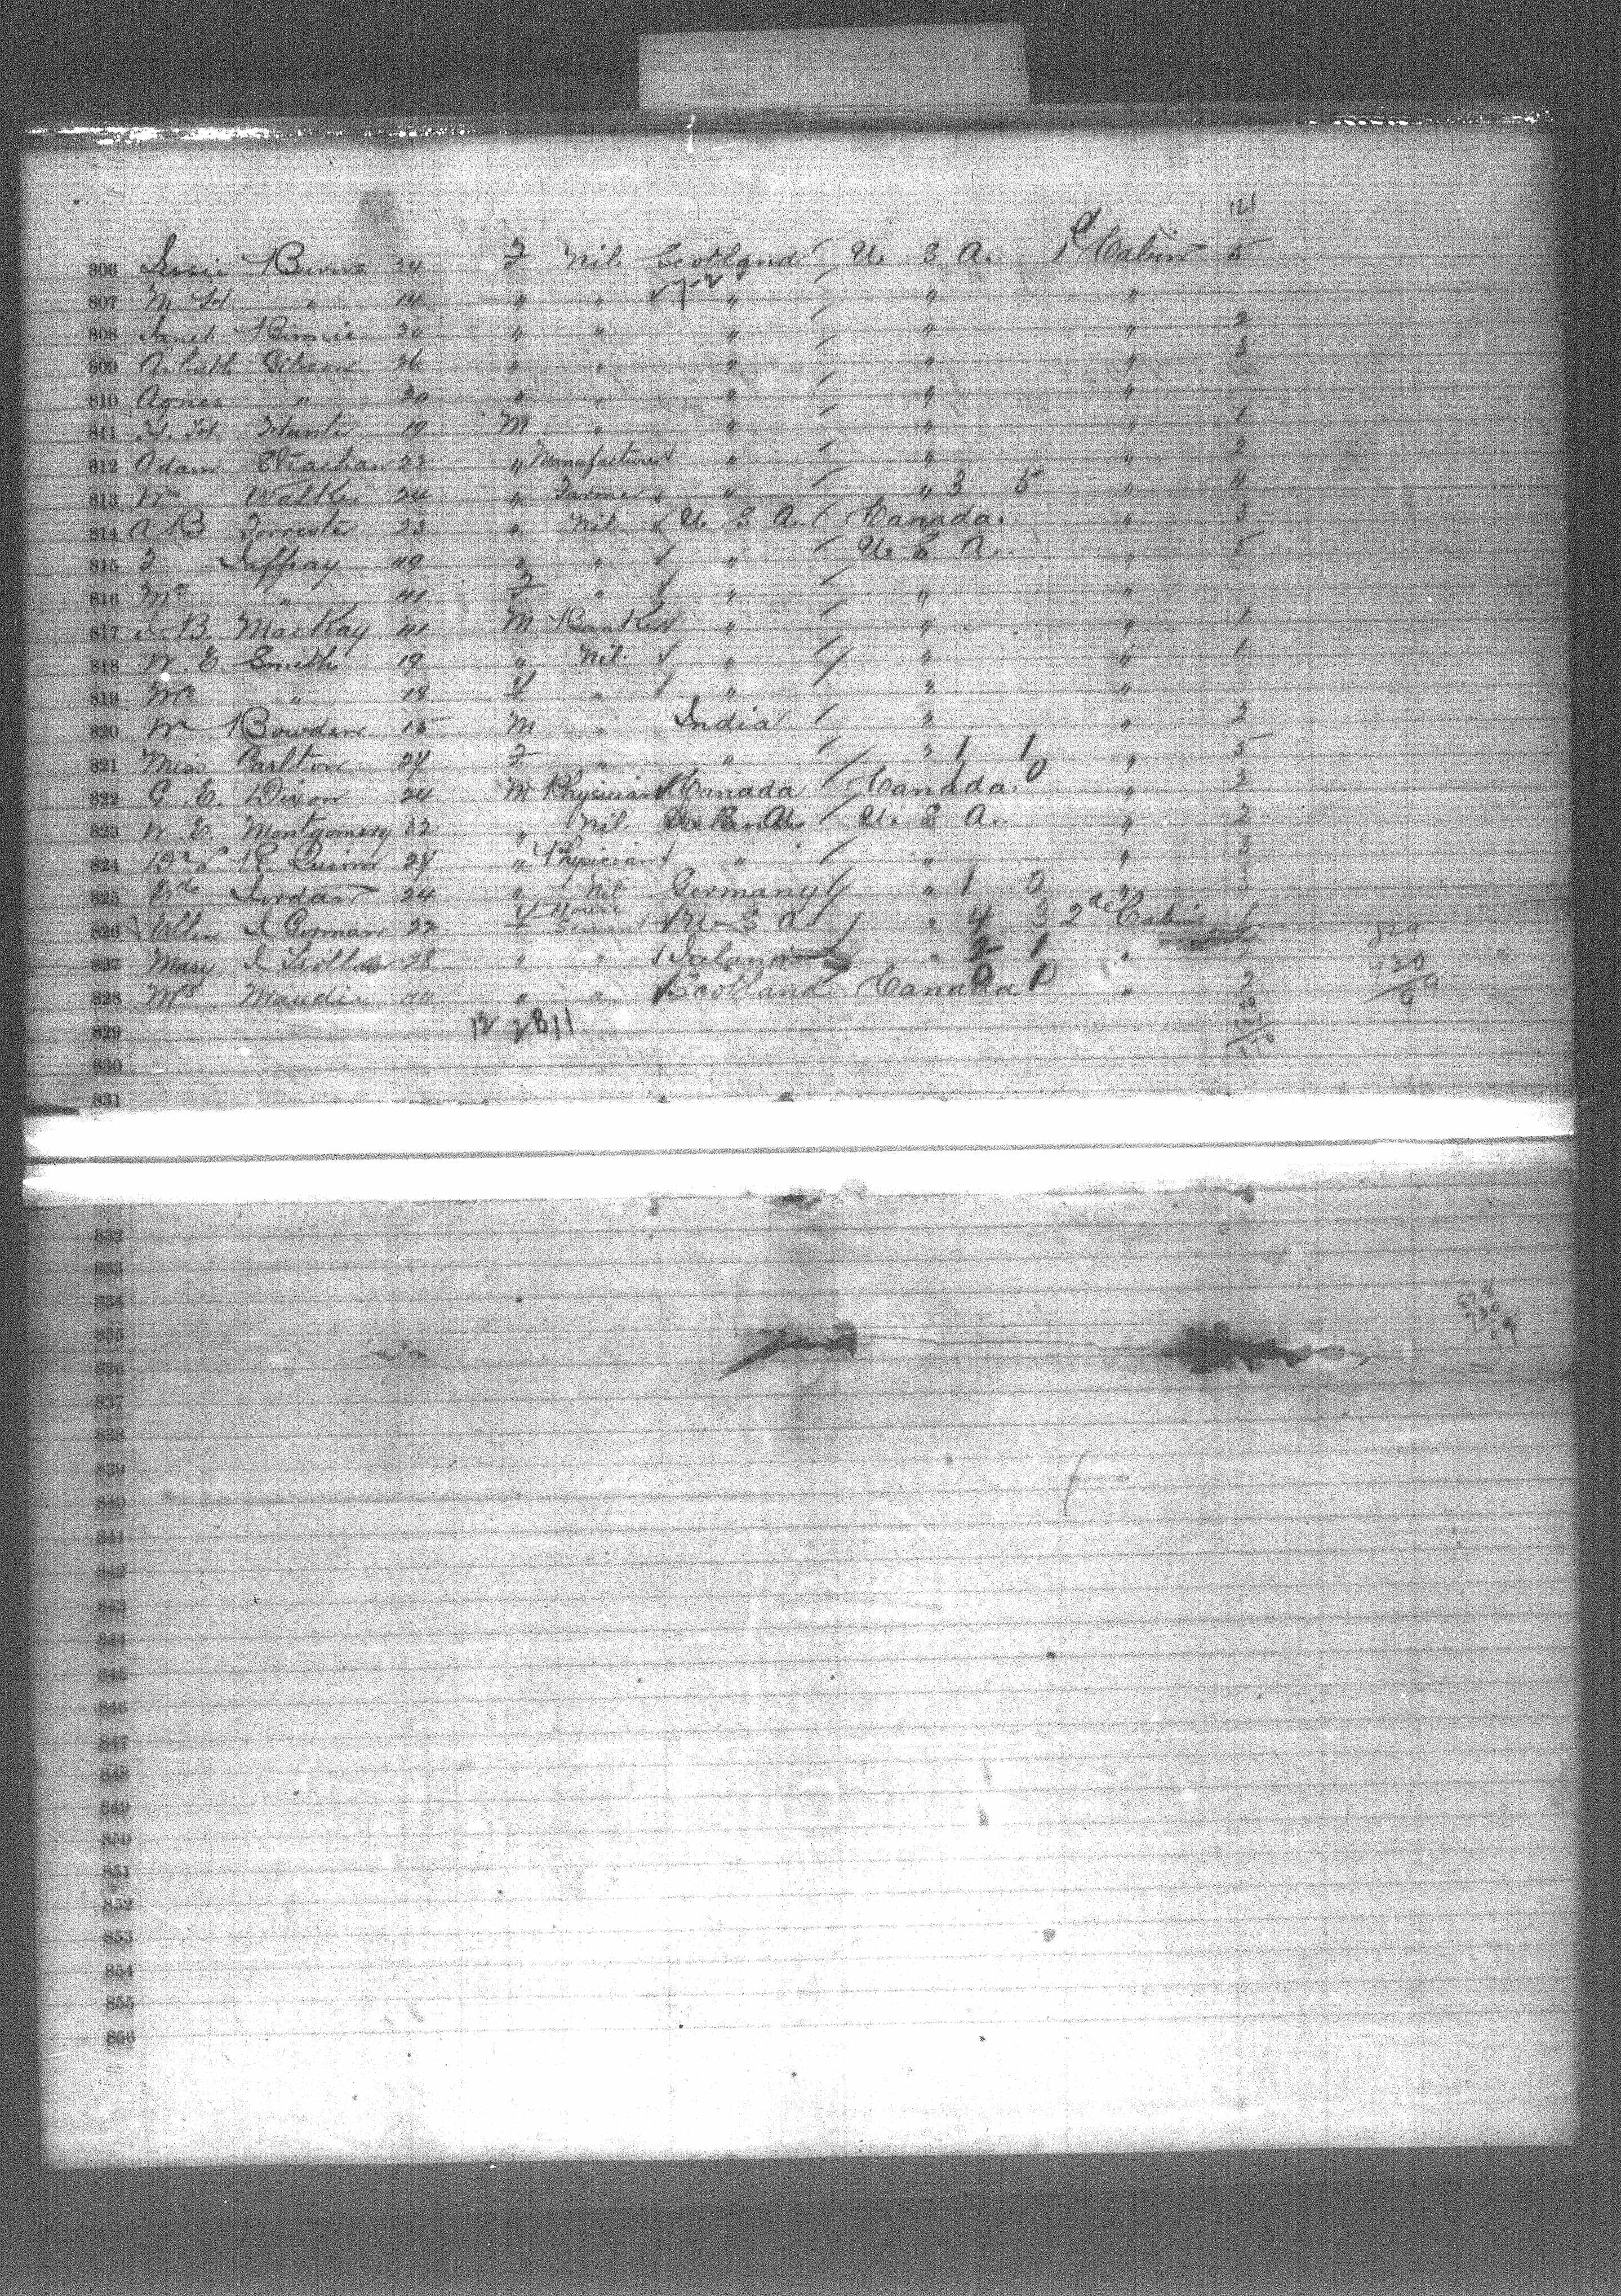 121
806 Jessie Burns 24 F Nil. Scotland U. S. A. 1st Cabin 5
807 M. H. " 14 " " " " "
808 Janet Binnie 30 " " " " " 2
809 Gibson 26 " " " " " 3
810 Agnes " 20 " " " " "
811 H. H. Hunter 19 M " " " " 1
812 Adam Strachan 23 " Manufacturer " " " 2
813 Wm Walker 24 " Farmer " " 3 5 " 4
814 A B Forrester 23 " Nil U. S. A. Canada. " 3
815 F Jaffray 49 " " " U. S. A. " 5
816 Mrs " 41 F " " " "
817 B. MacKay 41 M Banker " " " 1
818 W. E. Smith 19 " Nil. " " " 1
819 Mrs " 18 F " " " "
820 Wm Bowden 15 M " India " " 2
821 Miss Carlton 27 F " " " 1 1 " 5
822 G. E. Dixon 24 M Physician Canada Canada 0 " 2
823 W. E. Montgomery 32 " Nil U. S. A. " 2
824 Dr L. R. Quinn 27 " Physician " " " 3
825 Jordan 24 " Nil Germany " 1 0 " 3
826 Ellen Gorman 22 F House Servant U S A " 4 3 2nd Cabin
827 Mary 28 " " Ireland " 2 1 "
828 Mrs Maudie 44 " " Scotland Canada 0 " 2
829 12 2811
830
831
832
833
834
835
836
837
838
839
840
841
842
843
844
845
846
847
848
849
850
851
852
853
854
855
856